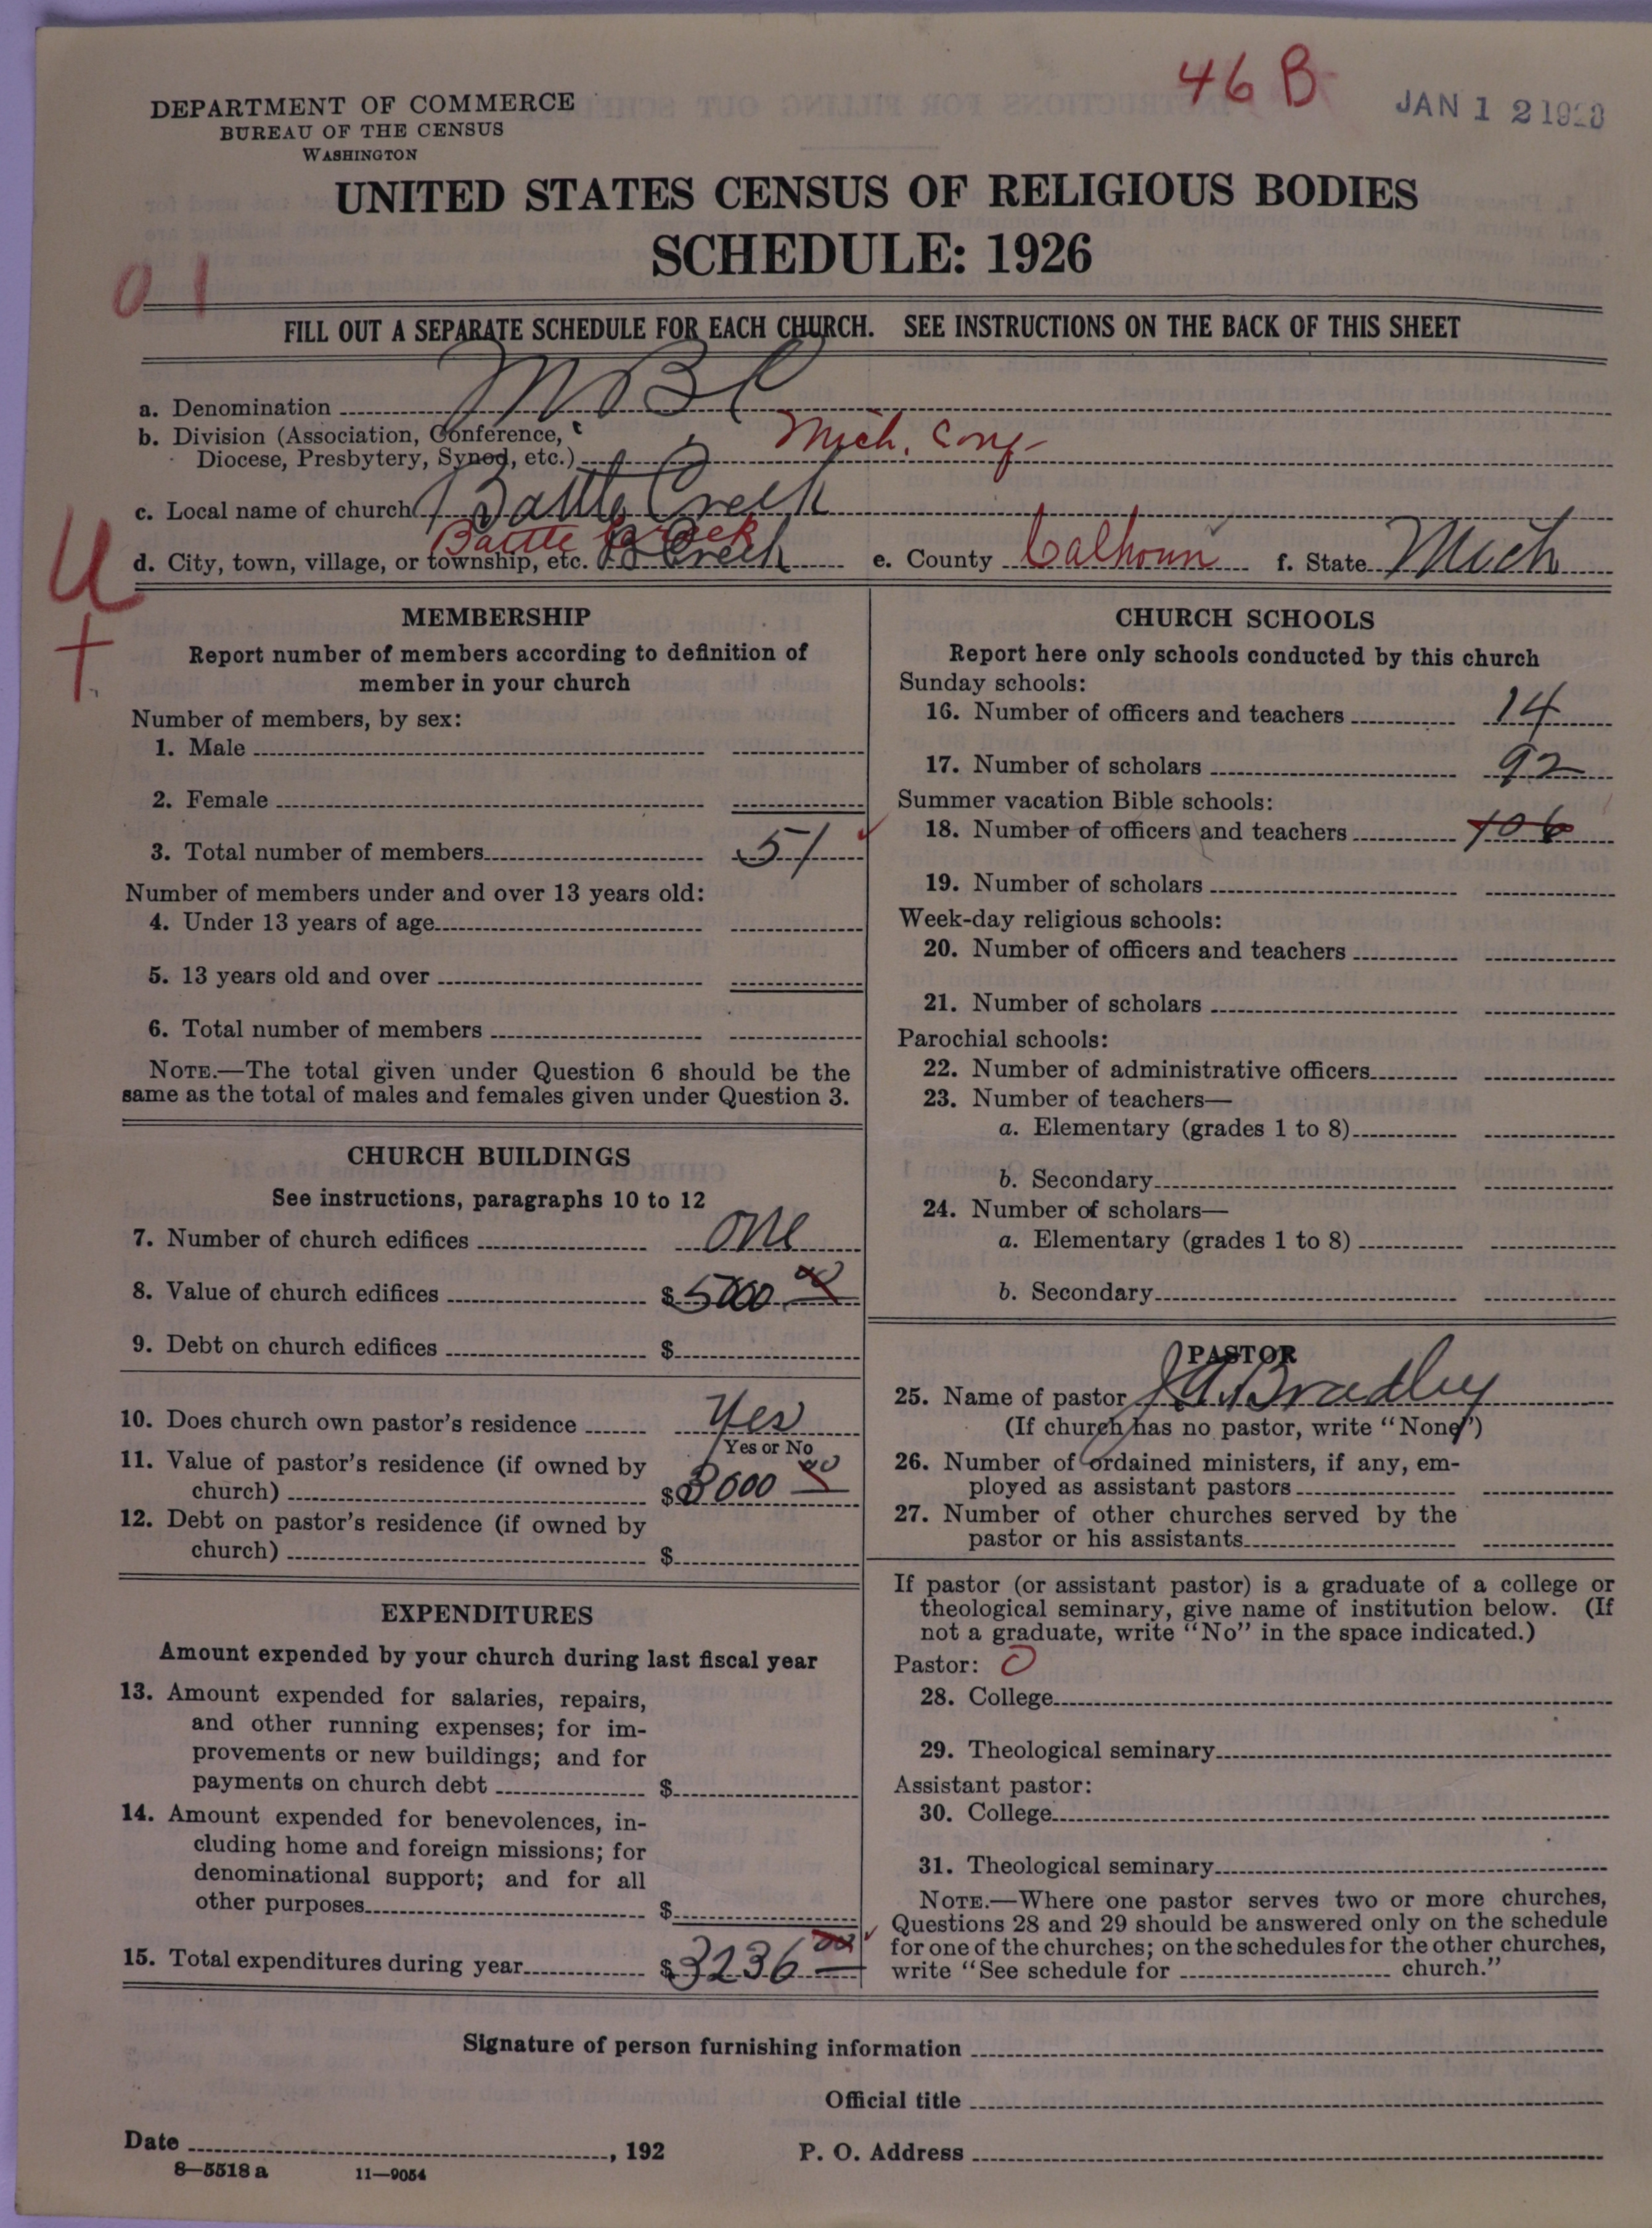 46 B
JAN 12 1928
DEPARTMENT OF COMMERCE
BUREAU OF THE CENSUS
WASHINGTON
UNITED STATES CENSUS OF RELIGIOUS BODIES
SCHEDULE: 1926
0 1
FILL OUT A SEPARATE SCHEDULE FOR EACH CHURCH. SEE INSTRUCTIONS ON THE BACK OF THIS SHEET
a. Denomination M B C
b. Division (Association, Conference,
Diocese, Presbytery, Synod, etc.) Mich. Conf
c. Local name of church Battle Creek
d. City, town, village, or township, etc. Battle Creek B Creek e. County Calhoun f. State Mich
U
MEMBERSHIP
Report number of members according to definition of
member in your church
Number of members, by sex:
1. Male
2. Female
3. Total number of members 51
Number of members under and over 13 years old:
4. Under 13 years of age
5. 13 years old and over
6. Total number of members
NOTE.—The total given under Question 6 should be the
same as the total of males and females given under Question 3.
CHURCH BUILDINGS
See instructions, paragraphs 10 to 12
7. Number of church edifices one
8. Value of church edifices $ 5000 00
9. Debt on church edifices $
10. Does church own pastor's residence Yes
Yes or No
11. Value of pastor's residence (if owned by
church) $ 3000 00
12. Debt on pastor's residence (if owned by
church) $
EXPENDITURES
Amount expended by your church during last fiscal year
13. Amount expended for salaries, repairs,
and other running expenses; for im-
provements or new buildings; and for
payments on church debt $
14. Amount expended for benevolences, in-
cluding home and foreign missions; for
denominational support; and for all
other purposes $
15. Total expenditures during year $ 3236 00
CHURCH SCHOOLS
Report here only schools conducted by this church
Sunday schools:
16. Number of officers and teachers 14
17. Number of scholars 92
Summer vacation Bible schools:
18. Number of officers and teachers 106
19. Number of scholars
Week-day religious schools:
20. Number of officers and teachers
21. Number of scholars
Parochial schools:
22. Number of administrative officers
23. Number of teachers—
a. Elementary (grades 1 to 8)
b. Secondary
24. Number of scholars—
a. Elementary (grades 1 to 8)
b. Secondary
PASTOR
25. Name of pastor J. A. Bradley
(If church has no pastor, write "None")
26. Number of ordained ministers, if any, em-
ployed as assistant pastors
27. Number of other churches served by the
pastor or his assistants
If pastor (or assistant pastor) is a graduate of a college or
theological seminary, give name of institution below. (If
not a graduate, write "No" in the space indicated.)
Pastor: 0
28. College
29. Theological seminary
Assistant pastor:
30. College
31. Theological seminary
NOTE.—Where one pastor serves two or more churches,
Questions 28 and 29 should be answered only on the schedule
for one of the churches; on the schedules for the other churches,
write "See schedule for church."
Signature of person furnishing information
Official title
Date , 192 P. O. Address
8—5518 a 11—9054